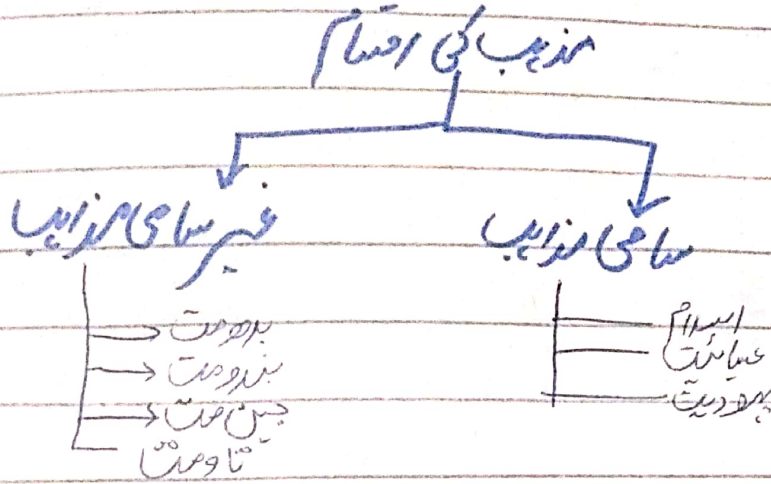 مذہب کی اقسام
سامی مذاہب
اسلام
عیسائیت
یہودیت
غیر سامی مذاہب
بدھ مت
ہندو مت
جین مت
تاؤ مت